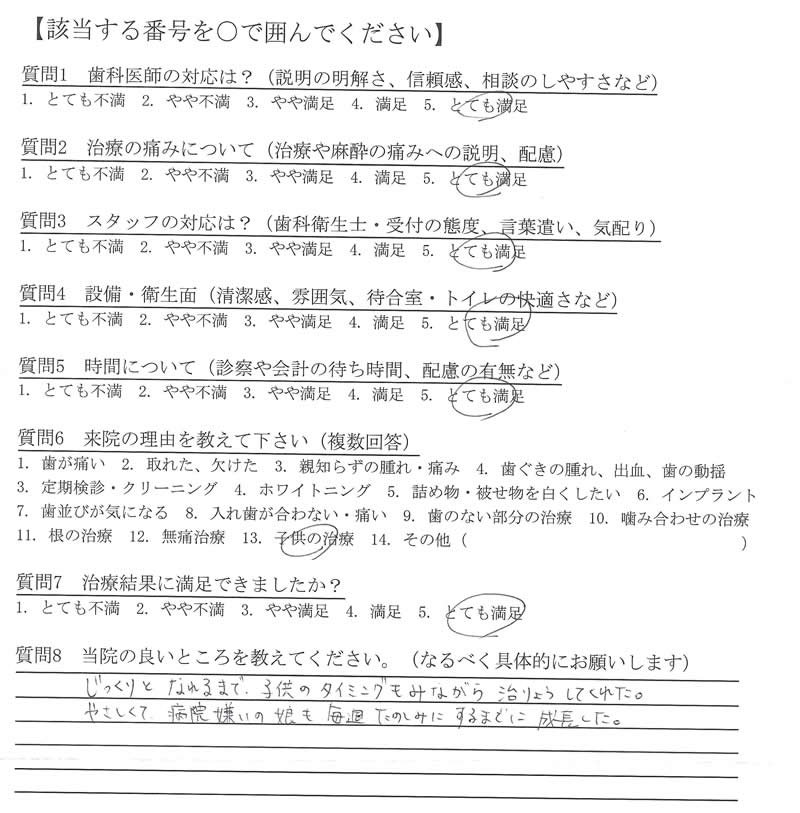 【該当する番号を○で囲んでください】
質問1 歯科医師の対応は?(説明の明解さ、信頼感、相談のしやすさなど)
1. とても不満 2. やや不満 3. やや満足 4. 満足 5. とても満足
質問2 治療の痛みについて(治療や麻酔の痛みへの説明、配慮)
1. とても不満 2. やや不満 3. やや満足 4. 満足 5. とても満足
質問3 スタッフの対応は?(歯科衛生士・受付の態度、言葉遣い、気配り)
1. とても不満 2. やや不満 3. やや満足 4. 満足 5. とても満足
質問4 設備・衛生面(清潔感、雰囲気、待合室・トイレの快適さなど)
1. とても不満 2. やや不満 3. やや満足 4. 満足 5. とても満足
質問5 時間について(診察や会計の待ち時間、配慮の有無など)
1. とても不満 2. やや不満 3. やや満足 4. 満足 5. とても満足
質問6 来院の理由を教えて下さい(複数回答)
1. 歯が痛い 2. 取れた、欠けた 3. 親知らずの腫れ・痛み 4. 歯ぐきの腫れ、出血、歯の動揺
3. 定期検診・クリーニング 4. ホワイトニング 5. 詰め物・被せ物を白くしたい 6. インプラント
7. 歯並びが気になる 8. 入れ歯が合わない・痛い 9. 歯のない部分の治療 10. 噛み合わせの治療
11. 根の治療 12. 無痛治療 13. 子供の治療 14. その他( )
質問7 治療結果に満足できましたか?
1. とても不満 2. やや不満 3. やや満足 4. 満足 5. とても満足
質問8 当院の良いところを教えてください。(なるべく具体的にお願いします)
じっくりと なれるまで、子供の タイミングもみながら 治りょうしてくれた。
やさしくて、病院嫌いの娘も 毎週 たのしみに するまでに 成長した。